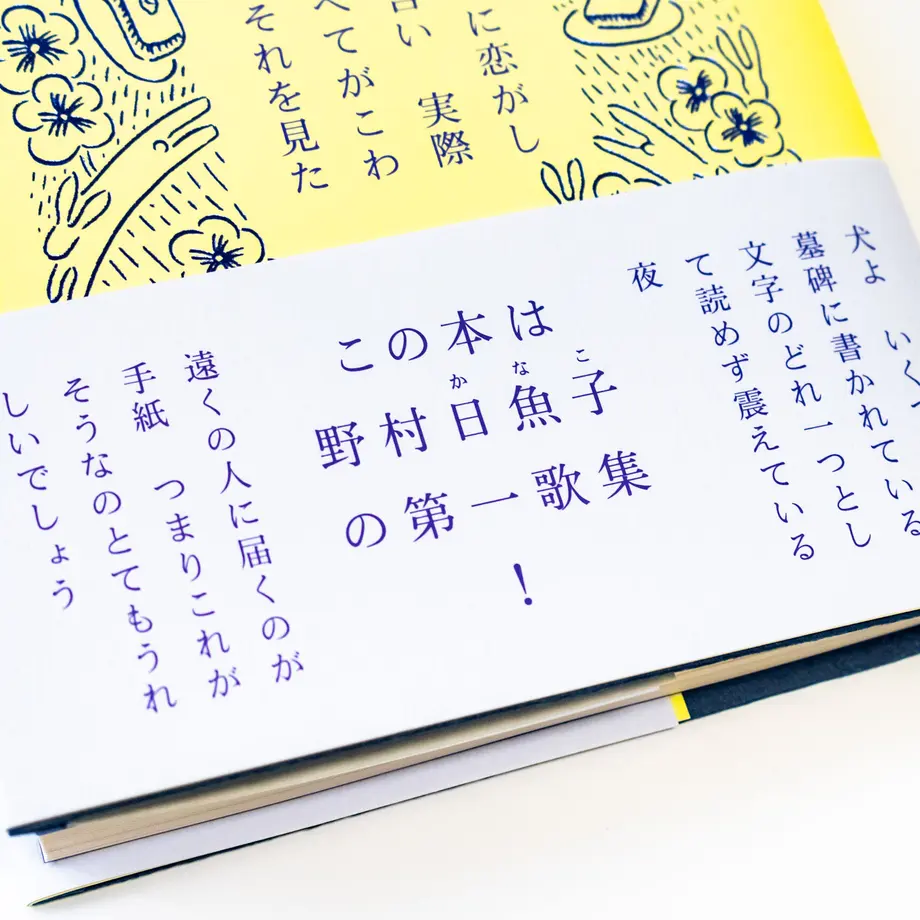 に恋がし
言い 実際
べてがこわ
それを見た
犬よ いくつ
墓碑に書かれている
文字のどれ一つとし
て読めず震えている
夜
この本は
野村日魚子
かなこ
の第一歌集
！
遠くの人に届くのが
手紙 つまりこれが
そうなのとてもうれ
しいでしょう